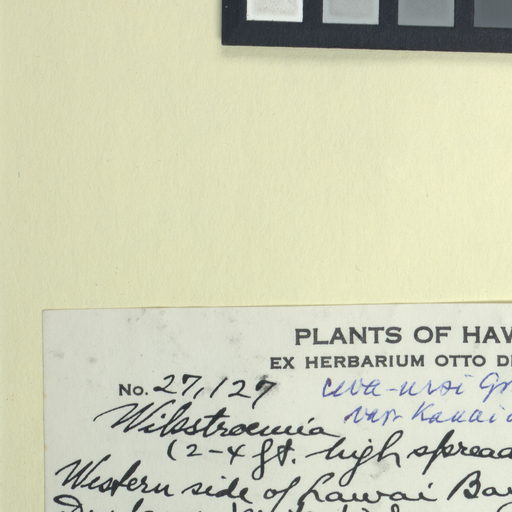 PLANTS OF HAW
EX HERBARIUM OTTO D
No. 27,127 uva-ursi Gr
var. Kauai
Wilkstroemia
(2-4 ft. high spread
Western side of Lawai Bay